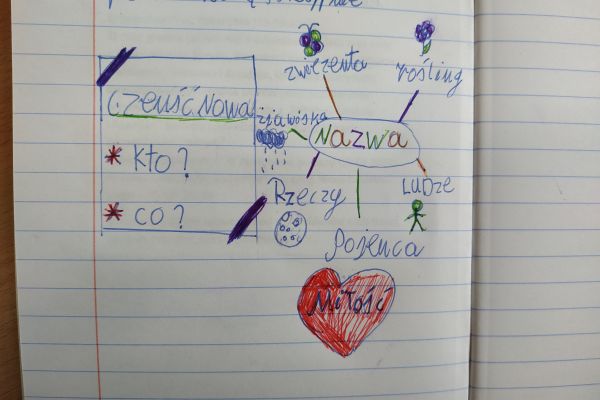 Częnść Nowa
* Kto?
* co?
zwiezenta
rośling
zjawiska
Nazwa
Rzeczy
Ludze
Pojenca
Miłość